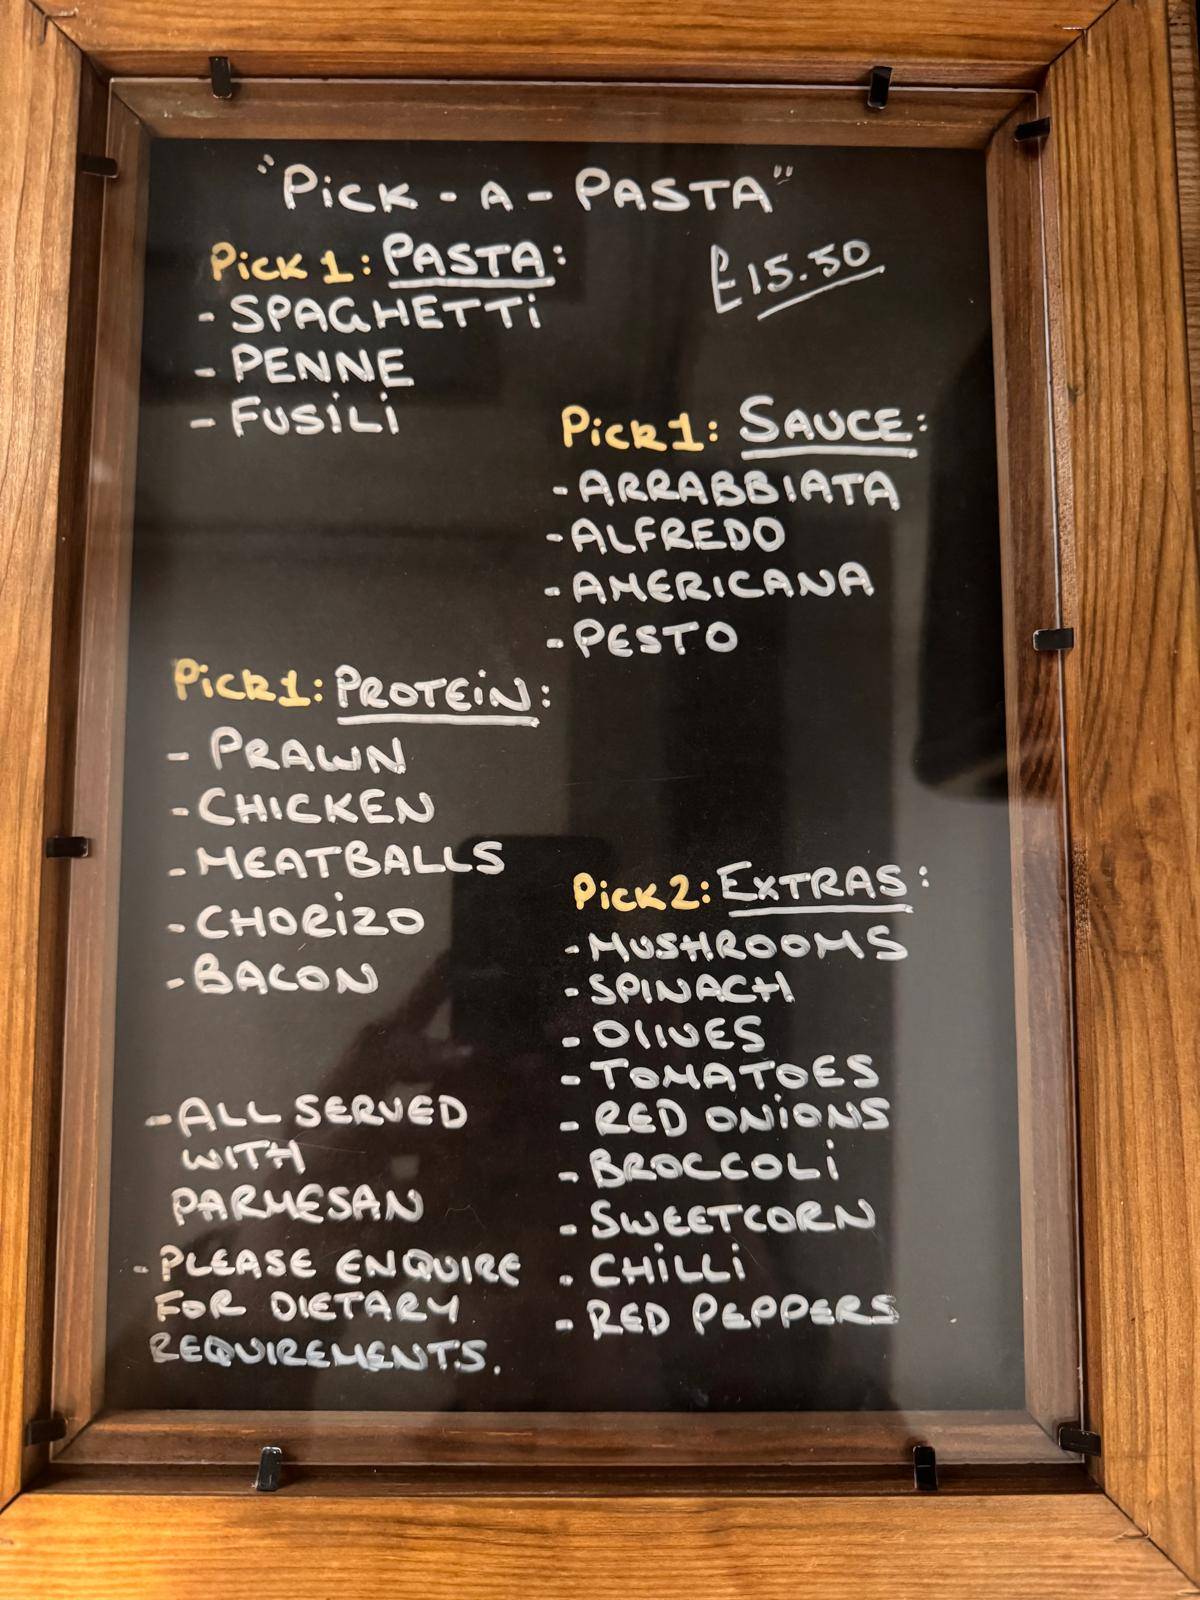 "PiCK - A - PASTA"
£15.50
Pick 1: PASTA:
- SPAGHETTi
- PENNE
- FUSiLi
Pick 1: SAUCE:
- ARRABBIATA
- ALFREDO
- AMERICANA
- PESTO
Pick 1: PROTEiN:
- PRAWN
- CHICKEN
- MEATBALLS
- CHORiZO
- BACON
Pick 2: EXTRAS:
- MUSHROOMS
- SPINACH
- OLIVES
- TOMATOES
- RED ONiONS
- BROCCOLi
- SWEETCORN
- CHiLLi
- RED PEPPERS
- ALL SERVED
WITH
PARMESAN
- PLEASE ENQUIRE
FOR DIETARY
REQUIREMENTS.